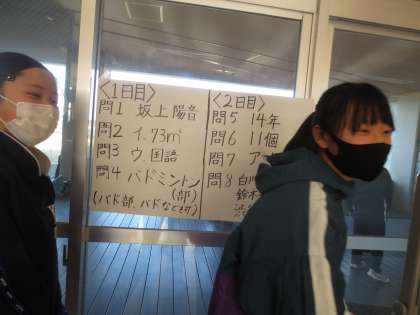 〈1日目〉
問1 坂上陽音
問2 イ.73㎡
問3 ウ.国語
問4 バドミントン
(部)
(バド部、バドなども可)
〈2日目〉
問5 14年
問6 11個
問7 ア
問8 白川
鈴木
渋